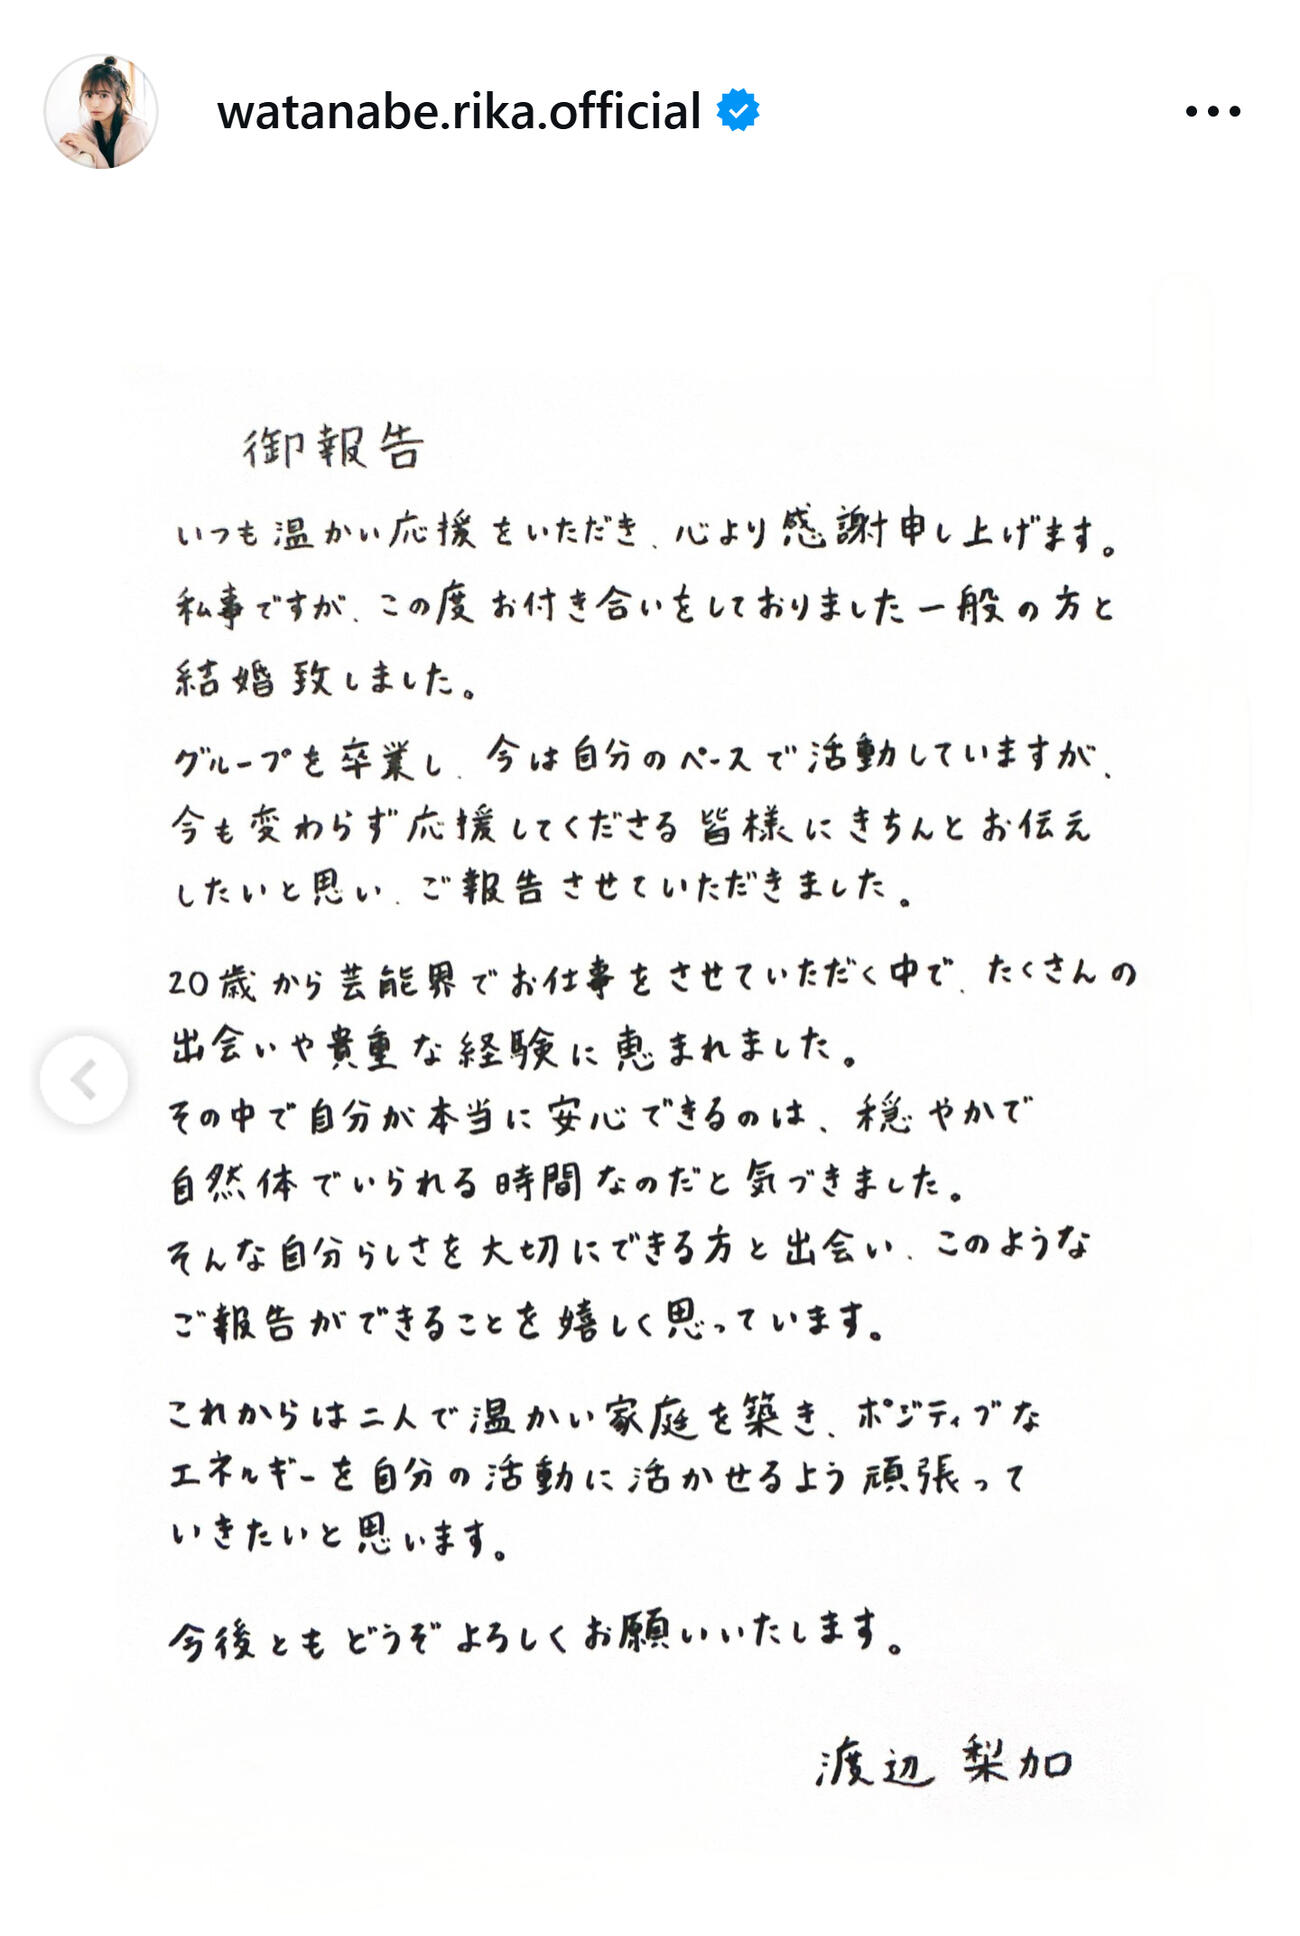 watanabe.rika.official
御報告
いつも温かい応援をいただき、心より感謝申し上げます。
私事ですが、この度お付き合いをしておりました一般の方と
結婚致しました。
グループを卒業し、今は自分のペースで活動していますが、
今も変わらず応援してくださる皆様にきちんとお伝え
したいと思い、ご報告させていただきました。
20歳から芸能界でお仕事をさせていただく中で、たくさんの
出会いや貴重な経験に恵まれました。
その中で自分が本当に安心できるのは、穏やかで
自然体でいられる時間なのだと気づきました。
そんな自分らしさを大切にできる方と出会い、このような
ご報告ができることを嬉しく思っています。
これからは二人で温かい家庭を築き、ポジティブな
エネルギーを自分の活動に活かせるよう頑張って
いきたいと思います。
今後ともどうぞよろしくお願いいたします。
渡辺 梨加